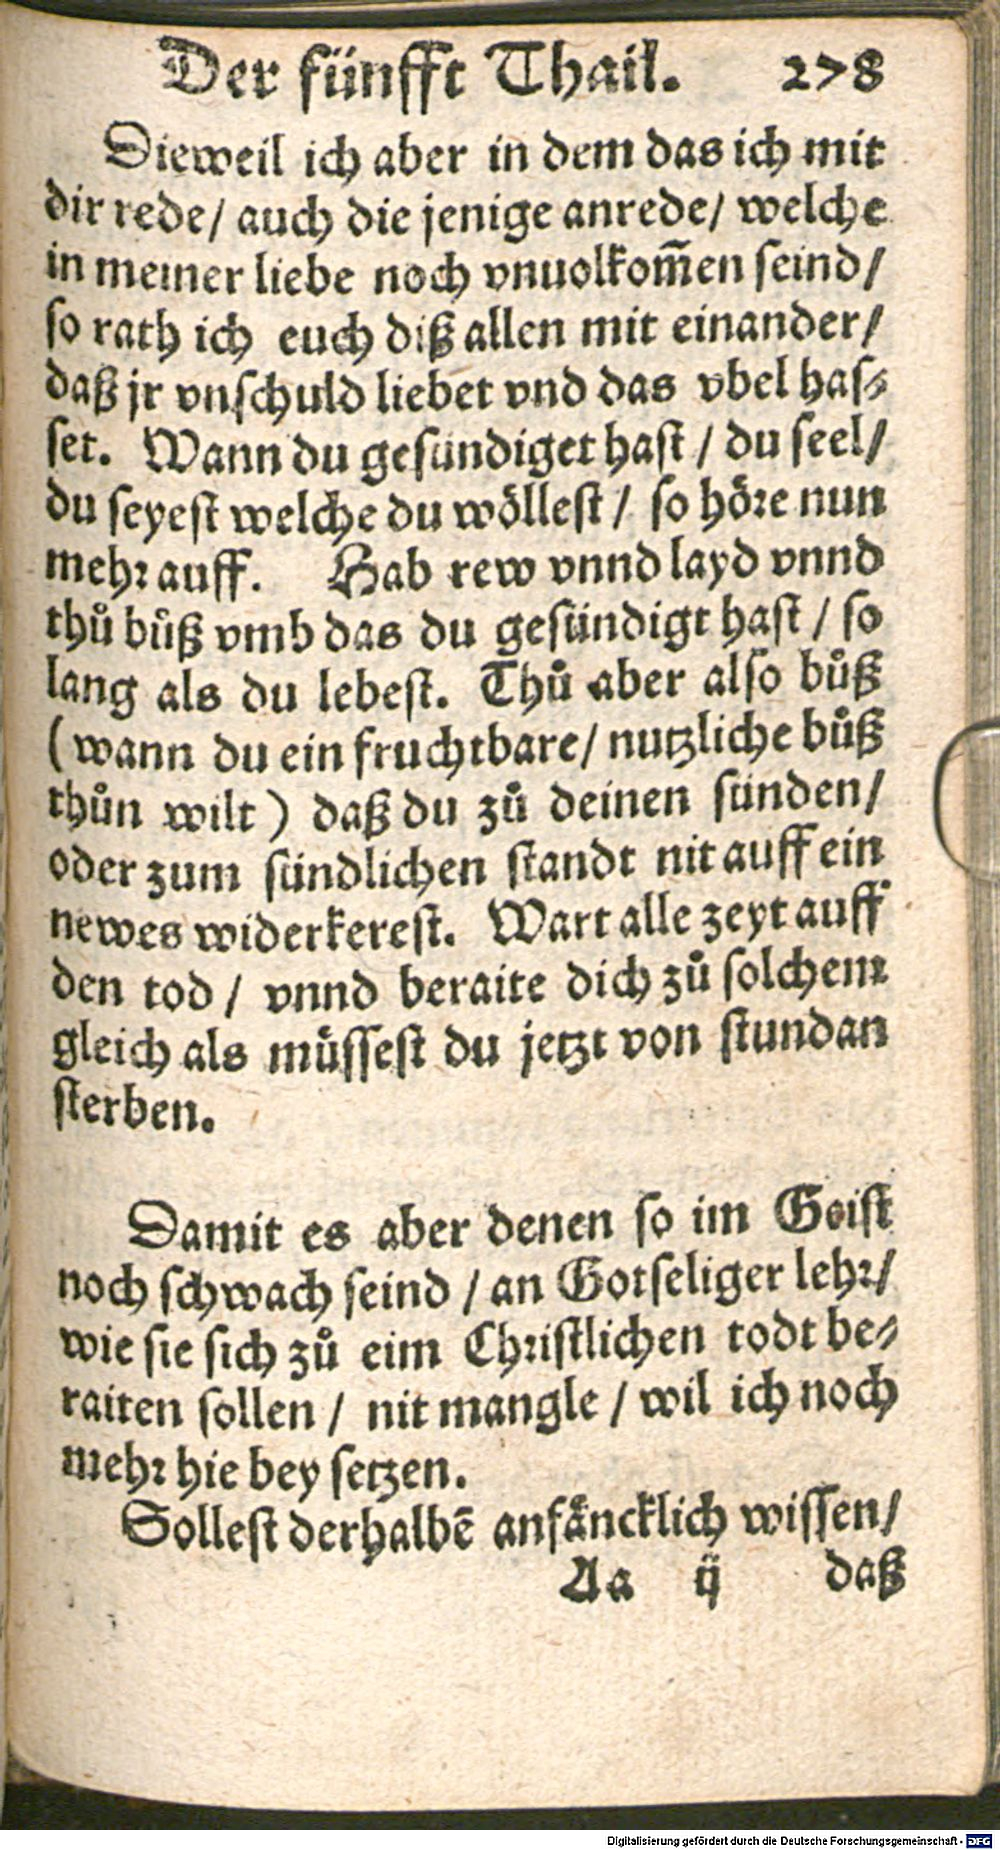 Der fünfft Thail. 278
Dieweil ich aber in dem das ich mit
dir rede/ auch die jenige anrede/ welche
in meiner liebe noch vnuolkom̃en seind/
so rath ich euch diß allen mit einander/
daß jr vnschuld liebet vnd das vbel has⸗
set. Wann du gesündiget hast / du seel/
du seyest welche du wöllest / so höre nun
mehr auff. Hab rew vnnd layd vnnd
thů bůß vmb das du gesündigt hast / so
lang als du lebest. Thů aber also bůß
(wann du ein fruchtbare/ nutzliche bůß
thůn wilt) daß du zů deinen sünden/
oder zum sündlichen standt nit auff ein
newes widerkerest. Wart alle zeyt auff
den tod / vnnd beraite dich zů solchem
gleich als müssest du jetzt von stundan
sterben.
Damit es aber denen so im Geist
noch schwach seind / an Gotseliger lehr/
wie sie sich zů eim Christlichen todt be⸗
raiten sollen / nit mangle / wil ich noch
mehr hie bey setzen.
Sollest derhalbẽ anfäncklich wissen/
Aa ij daß
Digitalisierung gefördert durch die Deutsche Forschungsgemeinschaft - DFG